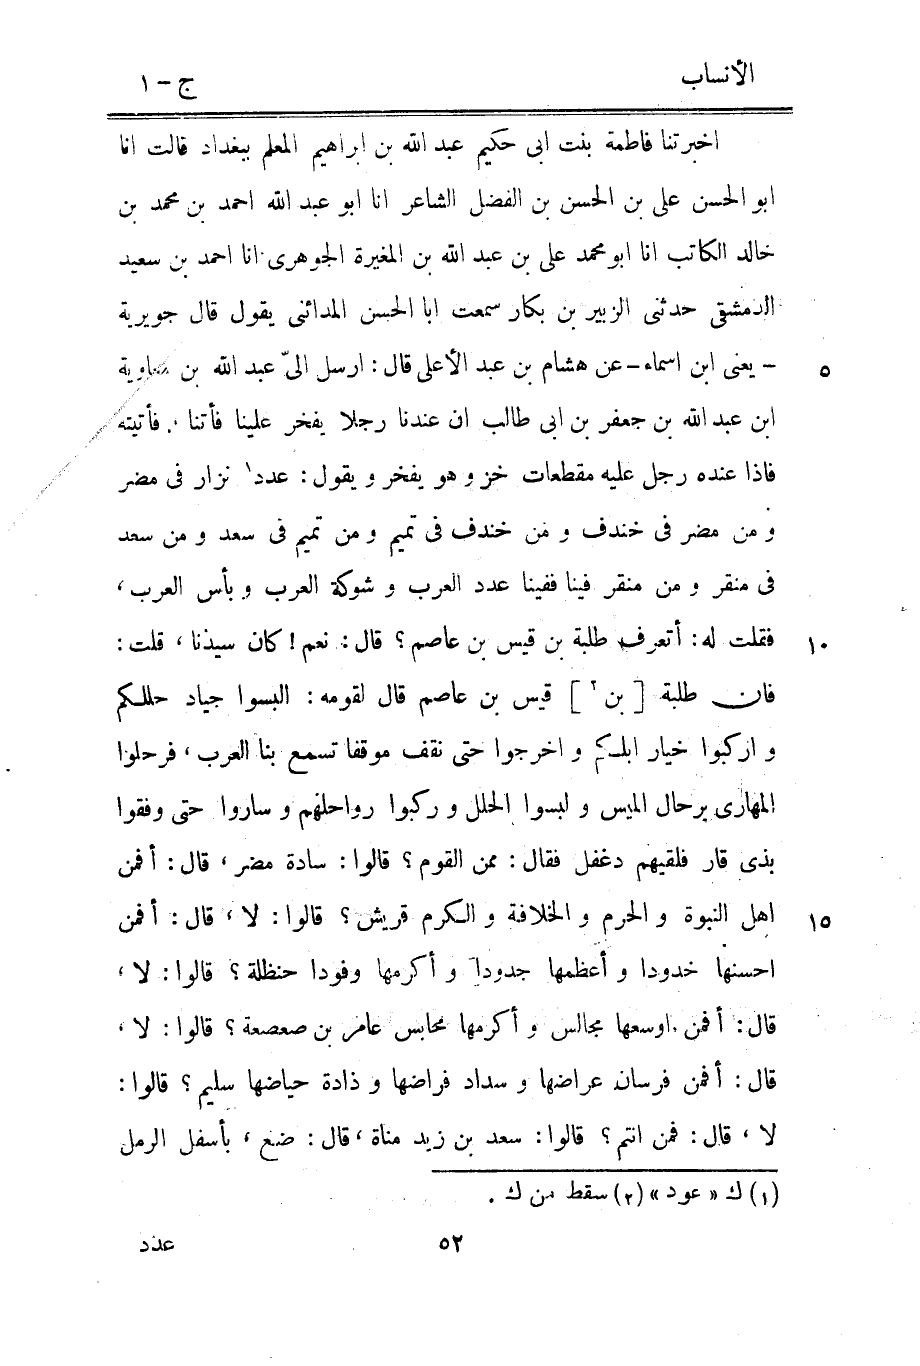 الأنساب ج - ١
اخبرتنا فاطمة بنت ابى حكيم عبد الله بن ابراهيم المعلم ببغداد قالت انا
ابو الحسن على بن الحسن بن الفضل الشاعر انا ابو عبد الله احمد بن محمد بن
خالد الكاتب انا ابو محمد على بن عبد الله بن المغيرة الجوهرى انا احمد بن سعيد
الدمشقى حدثنى الزبير بن بكار سمعت ابا الحسن المدائنى يقول قال جويرية
٥ - يعنى ابن اسماء - عن هشام بن عبد الأعلى قال : ارسل الىّ عبد الله بن معاوية
ابن عبد الله بن جعفر بن ابى طالب ان عندنا رجلا يفخر علينا فأتنا . فأتيته
فاذا عنده رجل عليه مقطعات خز و هو يفخر و يقول : عدد ١ نزار فى مضر
و من مضر فى خندف و من خندف فى تميم و من تميم فى سعد و من سعد
فى منقر و من منقر فينا ففينا عدد العرب و شوكة العرب و بأس العرب ،
١٠ فقلت له : أتعرف طلبة بن قيس بن عاصم ؟ قال : نعم ! كان سيدنا ، قلت :
فان طلبة [ بن ٢ ] قيس بن عاصم قال لقومه : البسوا جياد حللكم
و اركبوا خيار ابلكم و اخرجوا حتى نقف موقفا تسمع بنا العرب ، فرحلوا
المهارى برحال الميس و لبسوا الحلل و ركبوا رواحلهم و ساروا حتى وفقوا
بذى قار فلقيهم دغفل فقال : ممن القوم ؟ قالوا : سادة مضر ، قال : أفمن
١٥ اهل النبوة و الحرم و الخلافة و الكرم قريش ؟ قالوا : لا ، قال : أفمن
احسنها خدودا و أعظمها جدودا و أكرمها وفودا حنظلة ؟ قالوا : لا ،
قال : أفمن اوسعها مجالس و أكرمها محابس عامر بن صعصعة ؟ قالوا : لا ،
قال : أفمن فرسان عراضها و سداد فراضها و ذادة حياضها سليم ؟ قالوا :
لا ، قال : فمن انتم ؟ قالوا : سعد بن زيد مناة ، قال : ضع ، بأسفل الرمل
(١) ك « عود » (٢) سقط من ك .
٥٢ عدد